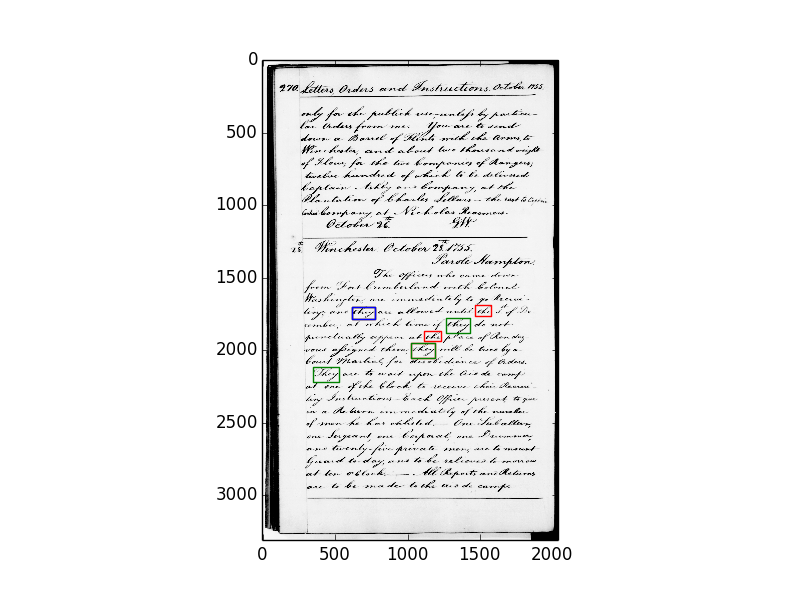 270. Letters Orders and Instructions. October 1755.
only for the publick use - unless by particu-
lar Orders from me. You are to send
down a Barrel of Flints with the Arms, to
Winchester, and about two thousand weight
of Flour, for the two Companies of Rangers;
twelve hundred of which to be delivered
Captain Ashby and Company, at the
Plantation of Charles Sellars - the rest to
Company at Nicholas Reasmers.
October 26. GW.
28. Winchester October 28th. 1755.
Parole Hampton.
The Officers who came down
from Fort Cumberland with Colonel
Washington, are immediately to go Recrui-
ting; and they are allowed until the 1st of De-
cember, at which time if they do not
punctually appear at the place of Rendez-
vous assigned them, they will be tried by a
Court Martial, for disobedience of Orders.
They are to wait upon the Aid de camp
at one of the Clock, to receive their Recrui-
ting Instructions - Each Officer present to give
in a Return immediately of the number
of men he has enlisted. One Subaltern,
one Sergeant, one Corporal, one Drummer,
and twenty-five private men, are to mount
Guard to-day, and to be relieved to morrow
at ten o'Clock. All Reports and Returns
are to be made to the Aid de camp.
0
500
1000
1500
2000
2500
3000
0 500 1000 1500 2000